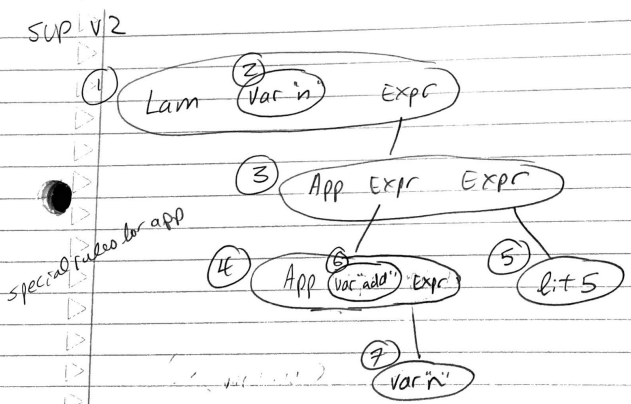 sup v2
1 Lam 2 Var "n" Expr
3 App Expr Expr
special rules for app
4 App 6 Var "add" Expr
5 Lit 5
7 Var "n"